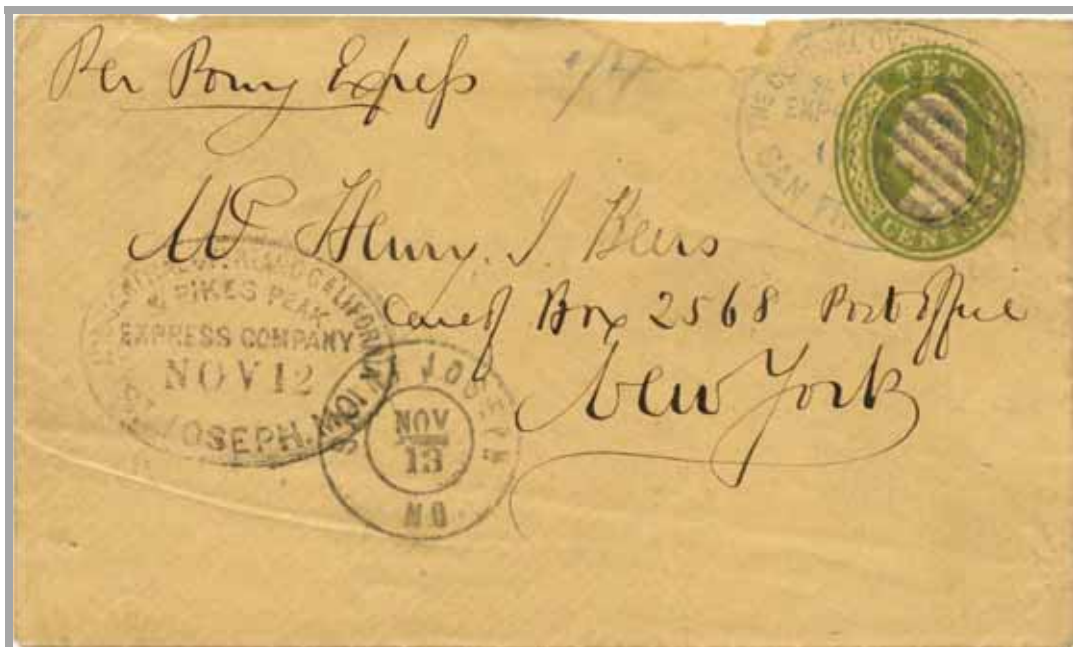 Per Pony Express
TEN
CENTS
THE CENTRAL OVERLAND
EXP
SAN FR
Mr Henry. J. Beers
Care of Box 2568 Post Office
New York
OVERLAND CALIFORNIA
& PIKES PEAK
EXPRESS COMPANY
NOV 12
JOSEPH. MO
ST JOSEPH
NOV
13
MO.